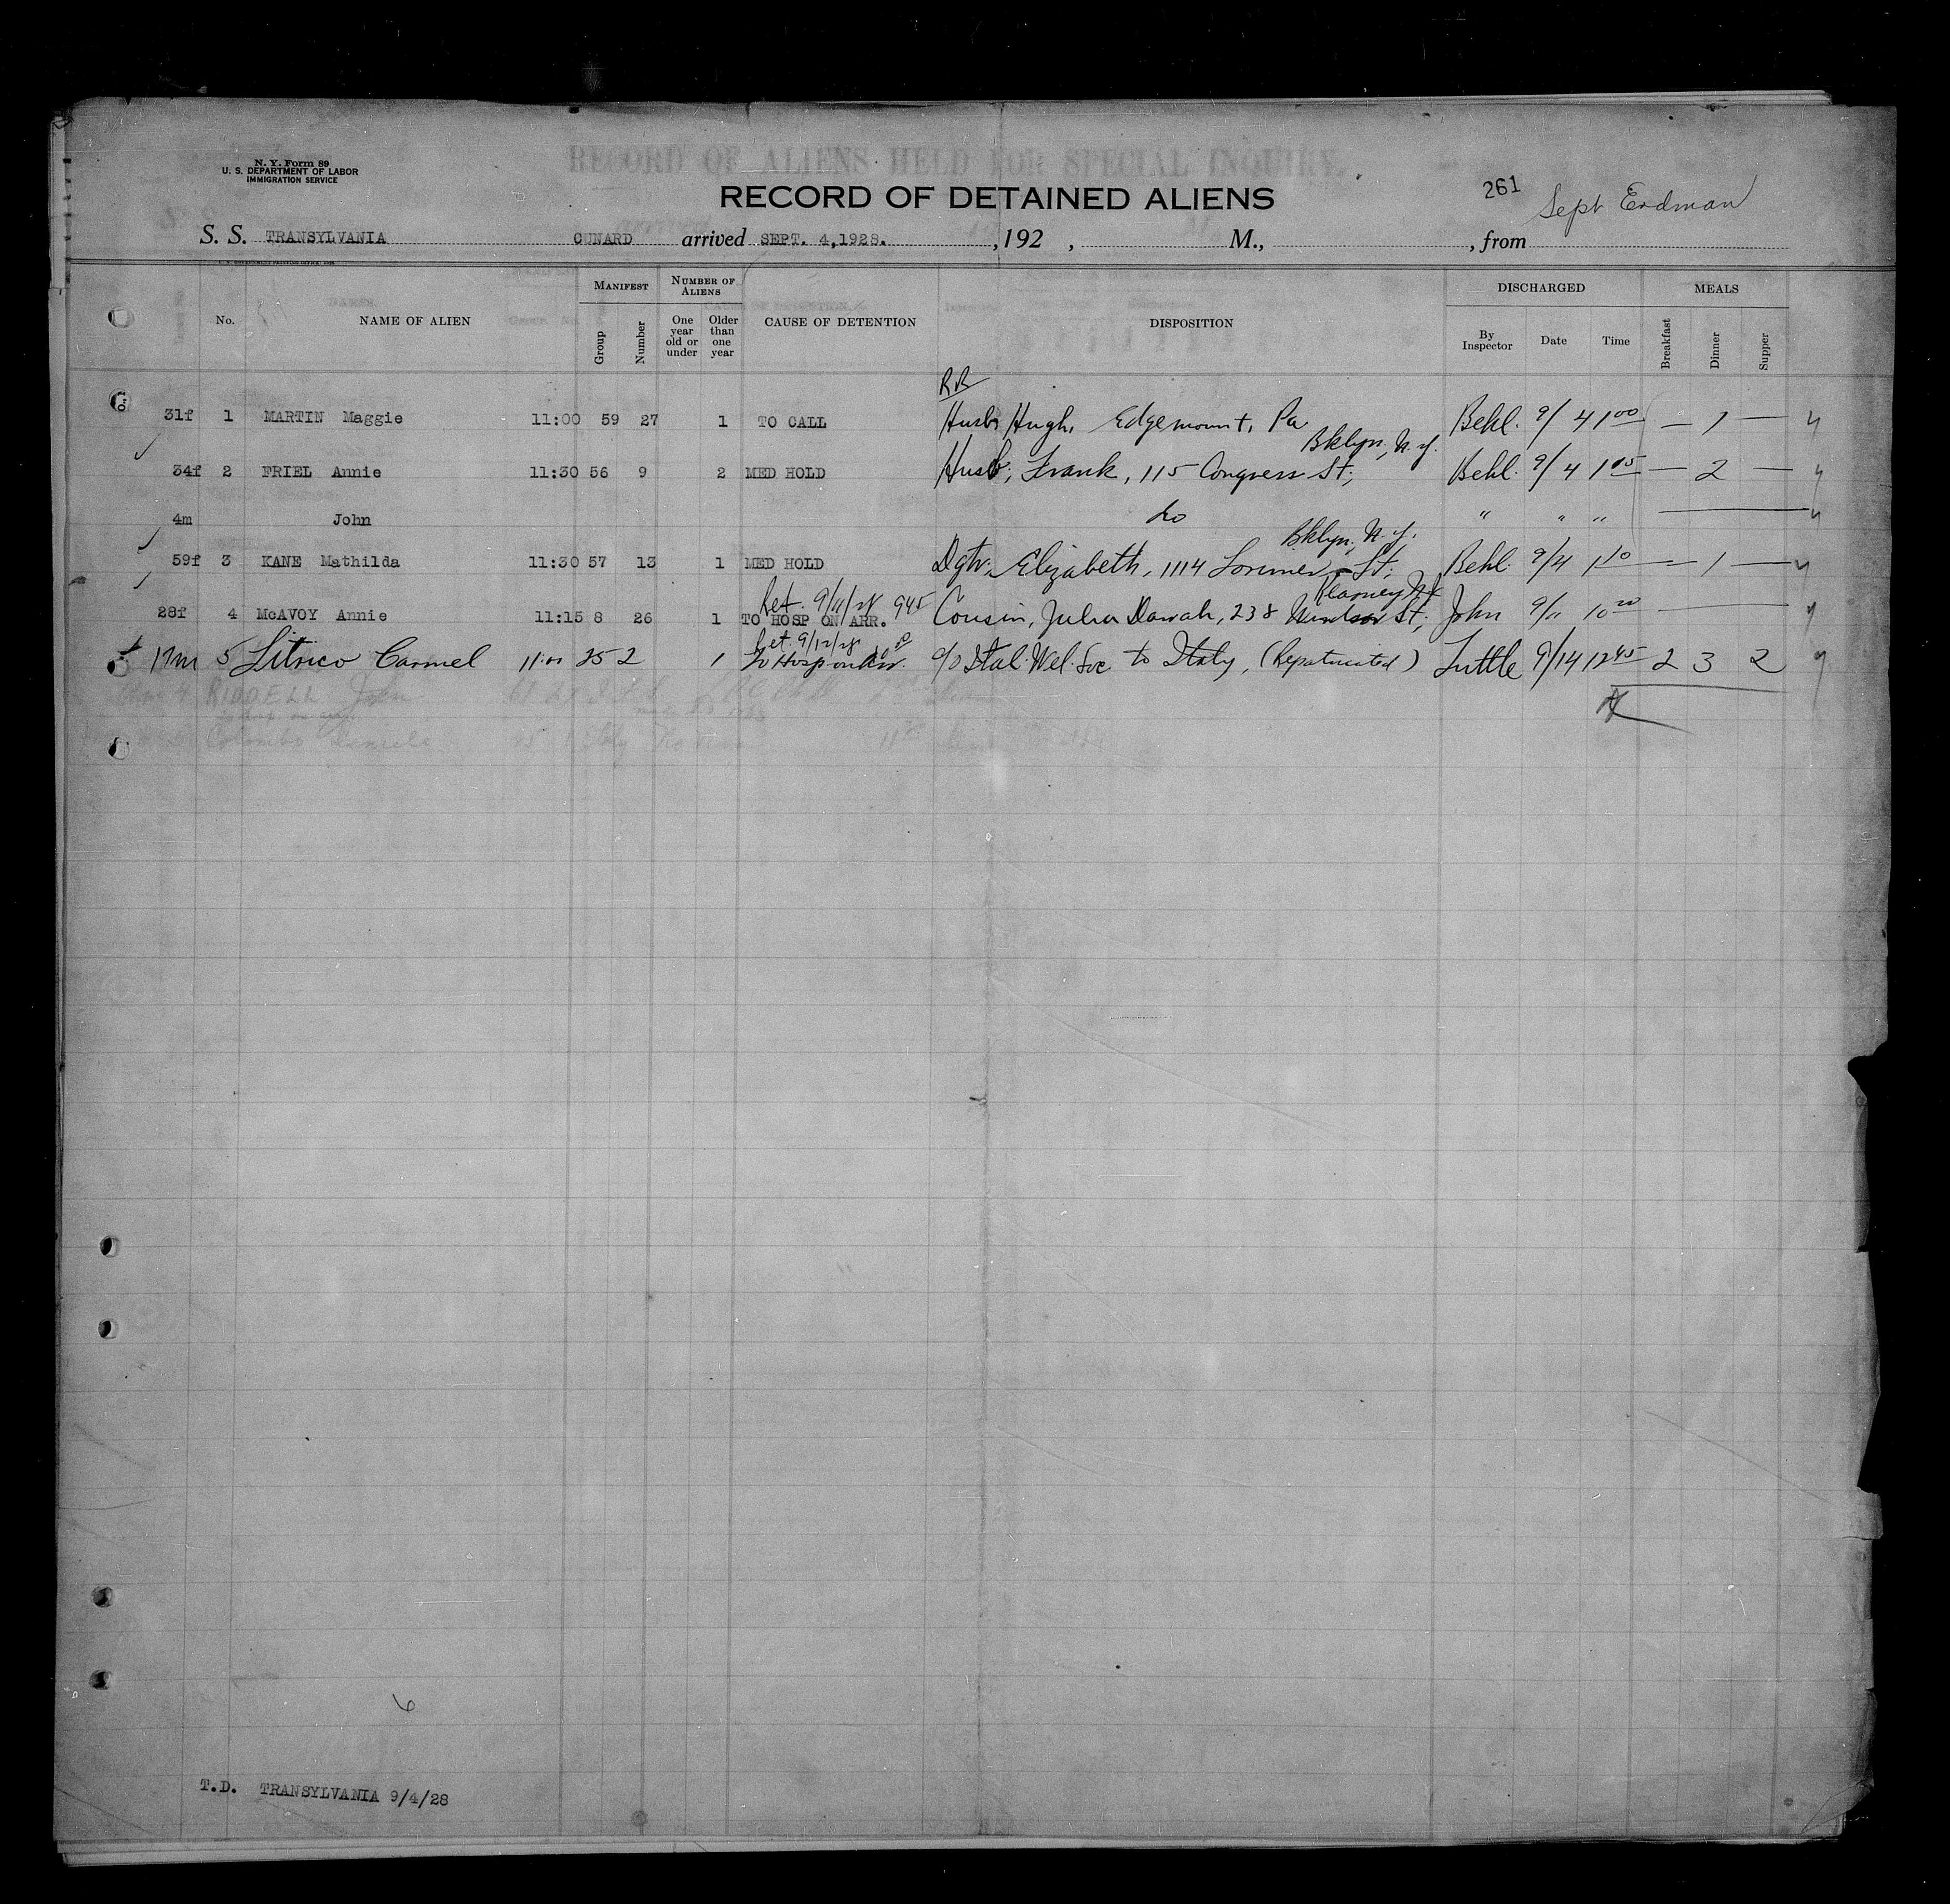 N. Y. Form 89
U. S. DEPARTMENT OF LABOR
IMMIGRATION SERVICE
RECORD OF ALIENS HELD FOR SPECIAL INQUIRY.
RECORD OF DETAINED ALIENS
261 Sept Erdman
S. S. TRANSYLVANIA CUNARD arrived SEPT. 4,1928. , 192 , M., , from
No. NAME OF ALIEN MANIFEST Group Number NUMBER OF ALIENS One year old or under Older than one year CAUSE OF DETENTION DISPOSITION DISCHARGED By Inspector Date Time MEALS Breakfast Dinner Supper
31f 1 MARTIN Maggie 11:00 59 27 1 TO CALL Husb Hugh, Edgemount, Pa Behl. 9/4 1 00 — 1 —
Bklyn, N.Y.
34f 2 FRIEL Annie 11:30 56 9 2 MED HOLD Husb; Frank, 115 Congress St; Behl. 9/4 1 05 — 2 —
4m John do " " "
Bklyn, N.Y.
59f 3 KANE Mathilda 11:30 57 13 1 MED HOLD Dgtr. Elizabeth, 1114 Lorimer St; Behl. 9/4 1 10 — 1 —
Ret. 9/11/28 945 Kearney NJ
28f 4 McAVOY Annie 11:15 8 26 1 TO HOSP ON ARR. Cousin, Julia 238 St; John 9/11 10 20
Ret 9/12/28
17m 5 Litrico Carmel 11:00 25 2 1 To Hosp on Arr. c/o Ital. Wel. Soc to Italy, (Repatriated) Tuttle 9/14 12 45 2 3 2
RIDDELL John
Colombo
6
T.D. TRANSYLVANIA 9/4/28